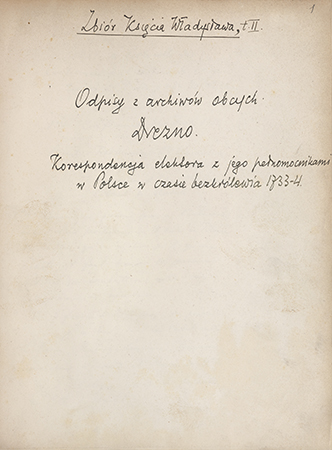 1
Zbiór Księcia Władysława, t. II.
Odpisy z archiwów obcych.
Drezno.
Korespondencja elektora z jego pełnomocnikami
w Polsce w czasie bezkrólewia 1733-4.